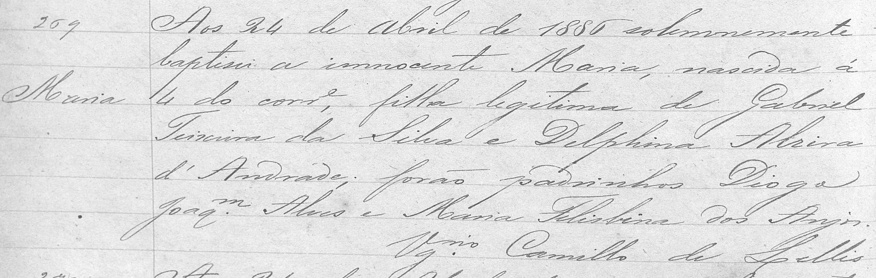 269
Aos 24 de Abril de 1886 solemnemente
baptisei a innocente Maria, nascida á
Maria
4 do corr.e, filha legitima de Gabriel
Teixeira da Silva e Delphina Alzira
d'Andrade; forão padrinhos Diogo
Joaq.m Alves e Maria Felisbina dos Anjos.
Vg.rio Camillo de Lellis